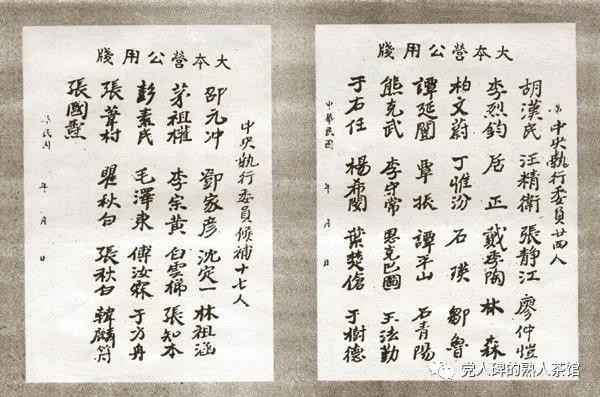 大本營公用牋
中央執行委員廿四人
胡漢民 汪精衛 張静江 廖仲愷
李烈鈞 居正 戴季陶 林森
柏文蔚 丁惟汾 石瑛 鄒魯
譚延闓 覃振 譚平山 石青陽
熊克武 李守常 恩克巴圖 王法勤
于右任 楊希閔 葉楚傖 于樹德
中華民國 年 月 日
大本營公用牋
中央執行委員候補十七人
邵元冲 鄧家彦 沈定一 林祖涵
茅祖權 李宗黄 白雲梯 張知本
彭素民 毛澤東 傅汝霖 于方舟
張葦村 瞿秋白 張秋白 韓麟符
張國燾
民國 年 月 日
党人碑的熟人茶馆